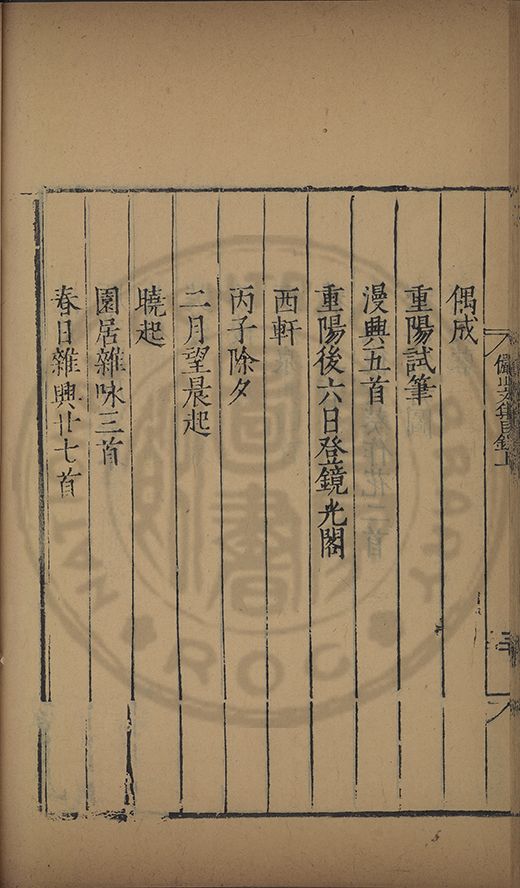 偶成
重陽試筆
漫興五首
重陽後六日登鏡光閣
西軒
丙子除夕
二月望晨起
曉起
園居雜咏三首
春日雜興廿七首